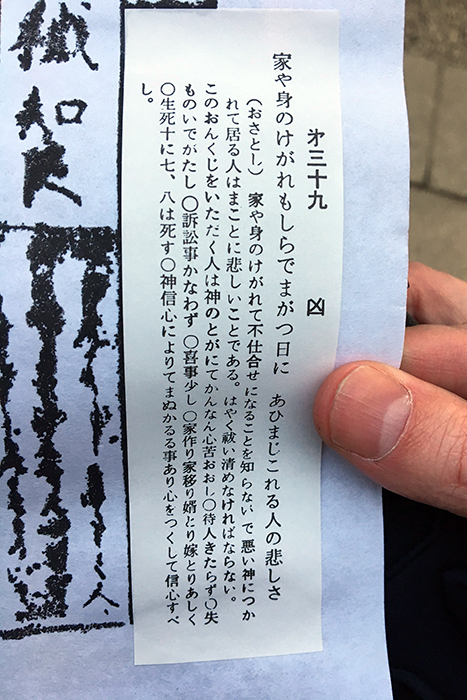 㐧三十九 凶
家や身のけがれもしらでまがつ日に あひまじこれる人の悲しさ
(おさとし) 家や身のけがれて不仕合せになることを知らないで悪い神につか
れて居る人はまことに悲しいことである。はやく祓い清めなければならない。
このおんくじをいただく人は神のとがにてかんなん心苦おおし〇待人きたらず〇失
ものいでがたし〇訴訟事かなわず〇喜事少し〇家作り家移り婿とり嫁とりあしく
〇生死十に七、八は死す〇神信心によりてまぬかるる事あり心をつくして信心すべ
し。